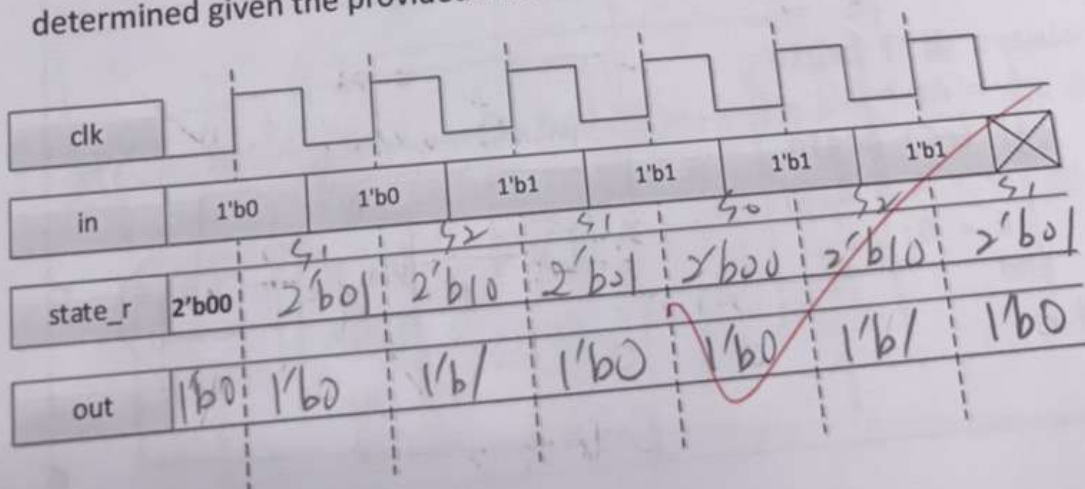 determined given the provided
clk
in 1'b0 1'b0 1'b1 1'b1 1'b1 1'b1
S1 S2 S1 S0 S2 S1
state_r 2'b00 2'b01 2'b10 2'b01 2'b00 2'b10 2'b01
out 1'b0 1'b0 1'b1 1'b0 1'b0 1'b1 1'b0